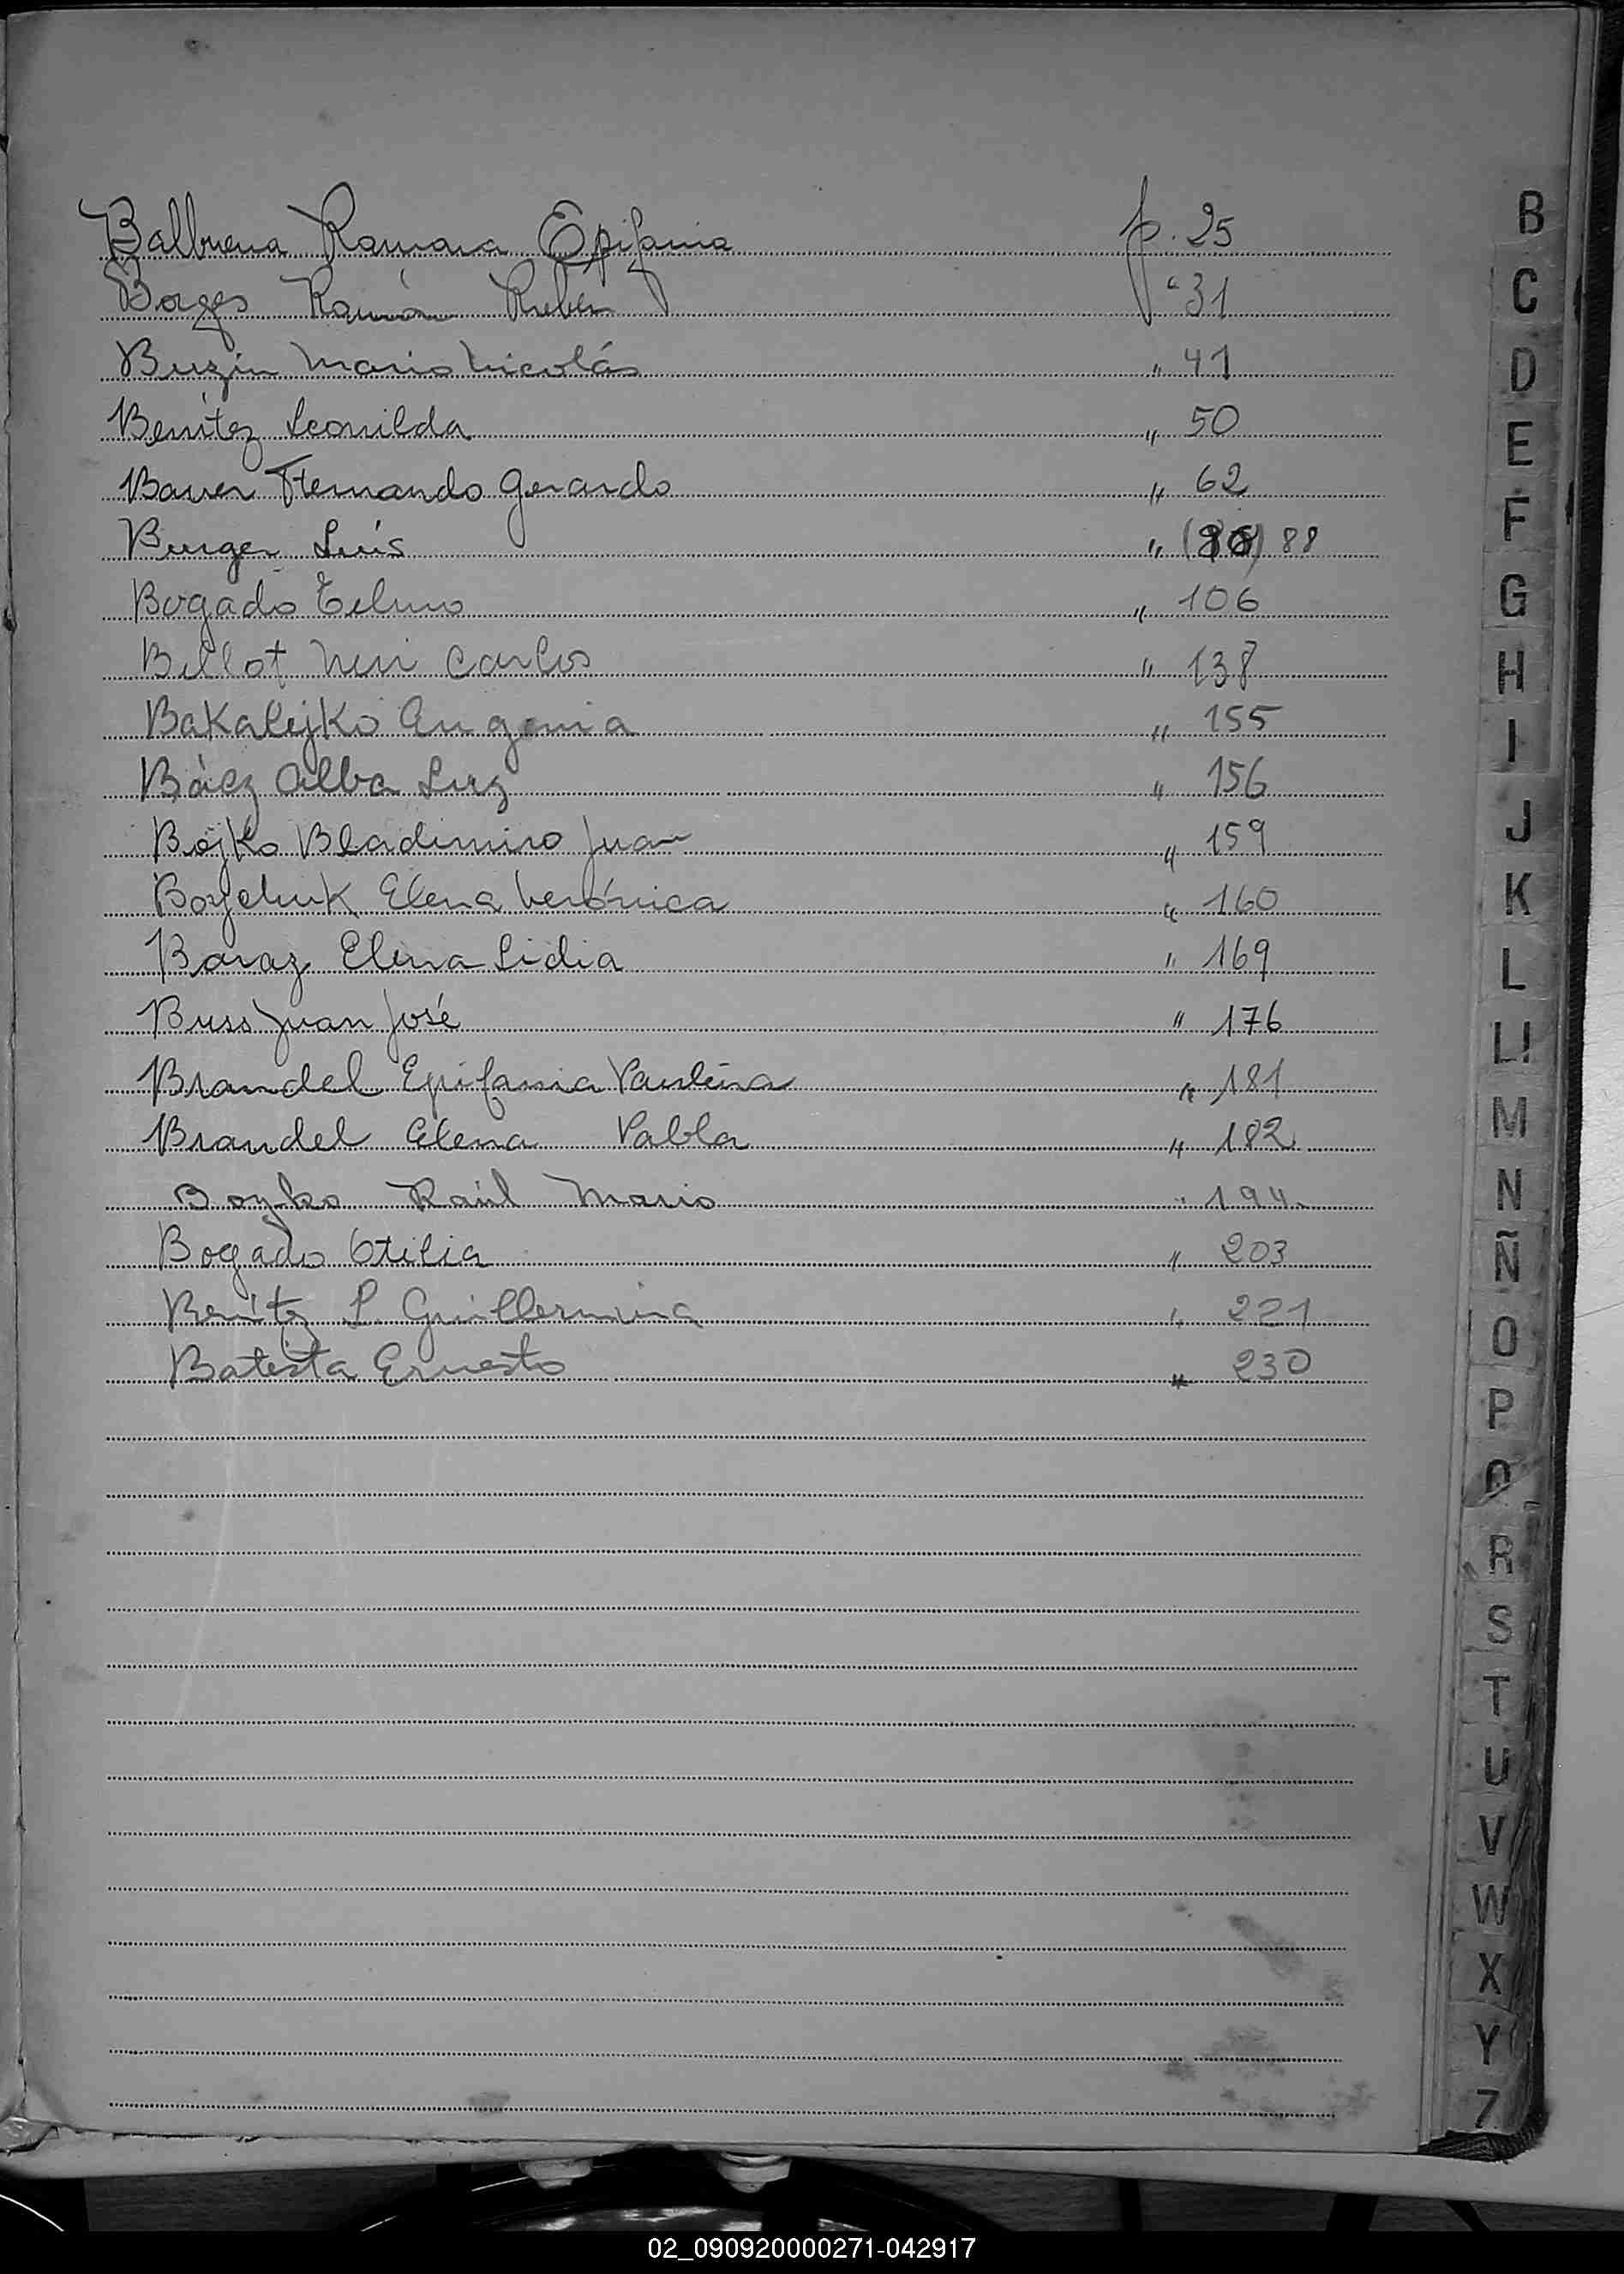 Balbuena Ramona Epifania p. 25
Borges Ramón Ruben " 31
Buzin Mario Nicolás " 41
Benítez Leonilda " 50
Bauer Hernando Gerardo " 62
Burger Luis " 88
Bogado Telmo " 106
Bellot Neri Carlos " 138
Bakalejko Eugenia " 155
Báez Alba Luz " 156
Bojko Bladimiro Juan " 159
Boychuk Elena Verónica " 160
Baraz Elena Lidia " 169
Buss Juan José " 176
Brandel Epifania Paulina " 181
Brandel Elena Pabla " 182
Boyko Raúl Mario " 194
Bogado Otilia " 203
Benítz L. Guillermina " 221
Batista Ernesto " 230
B
C
D
E
F
G
H
I
J
K
L
LL
M
N
Ñ
O
P
Q
R
S
T
U
V
W
X
Y
Z
02_090920000271-042917